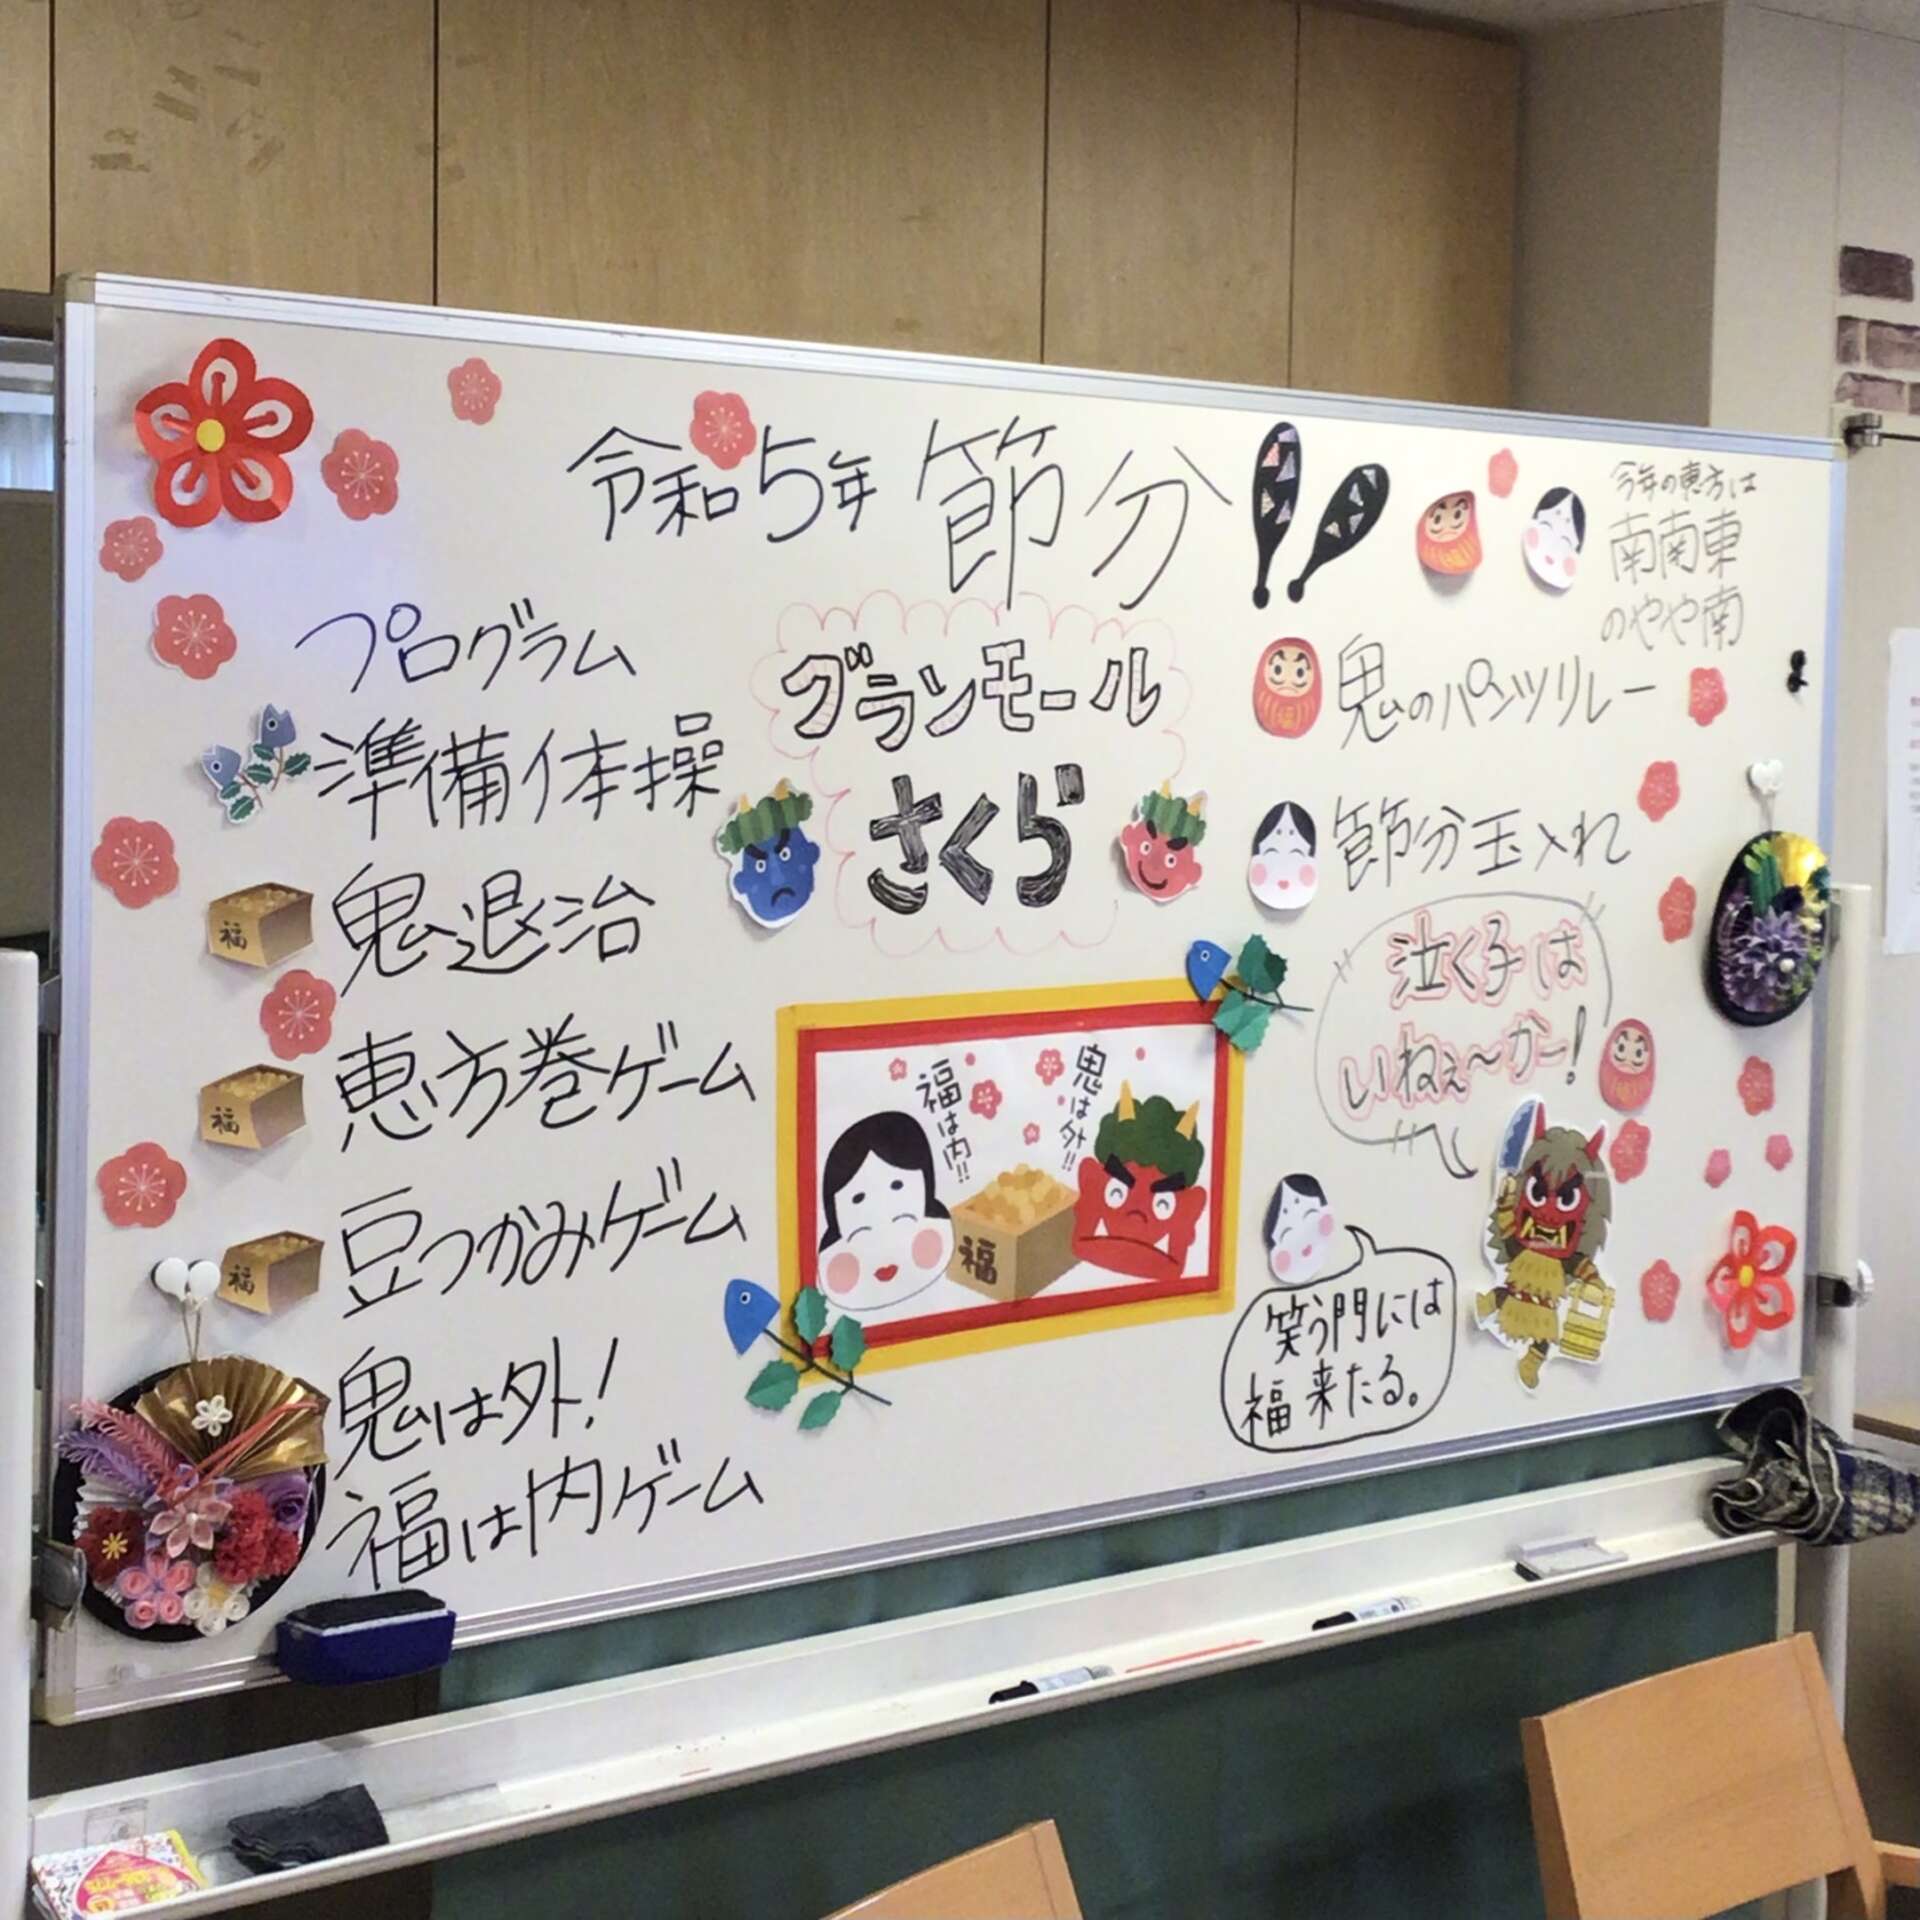 令和5年 節分!!
今年の恵方は
南南東
のやや南
プログラム
準備体操
鬼退治
恵方巻ゲーム
豆つかみゲーム
鬼は外!
福は内ゲーム
グランモール
さくら
鬼のパンツリレー
節分玉入れ
泣く子は
いねぇ〜かー!
笑う門には
福来たる。
福は内!!
鬼は外!!
福
福
福
福